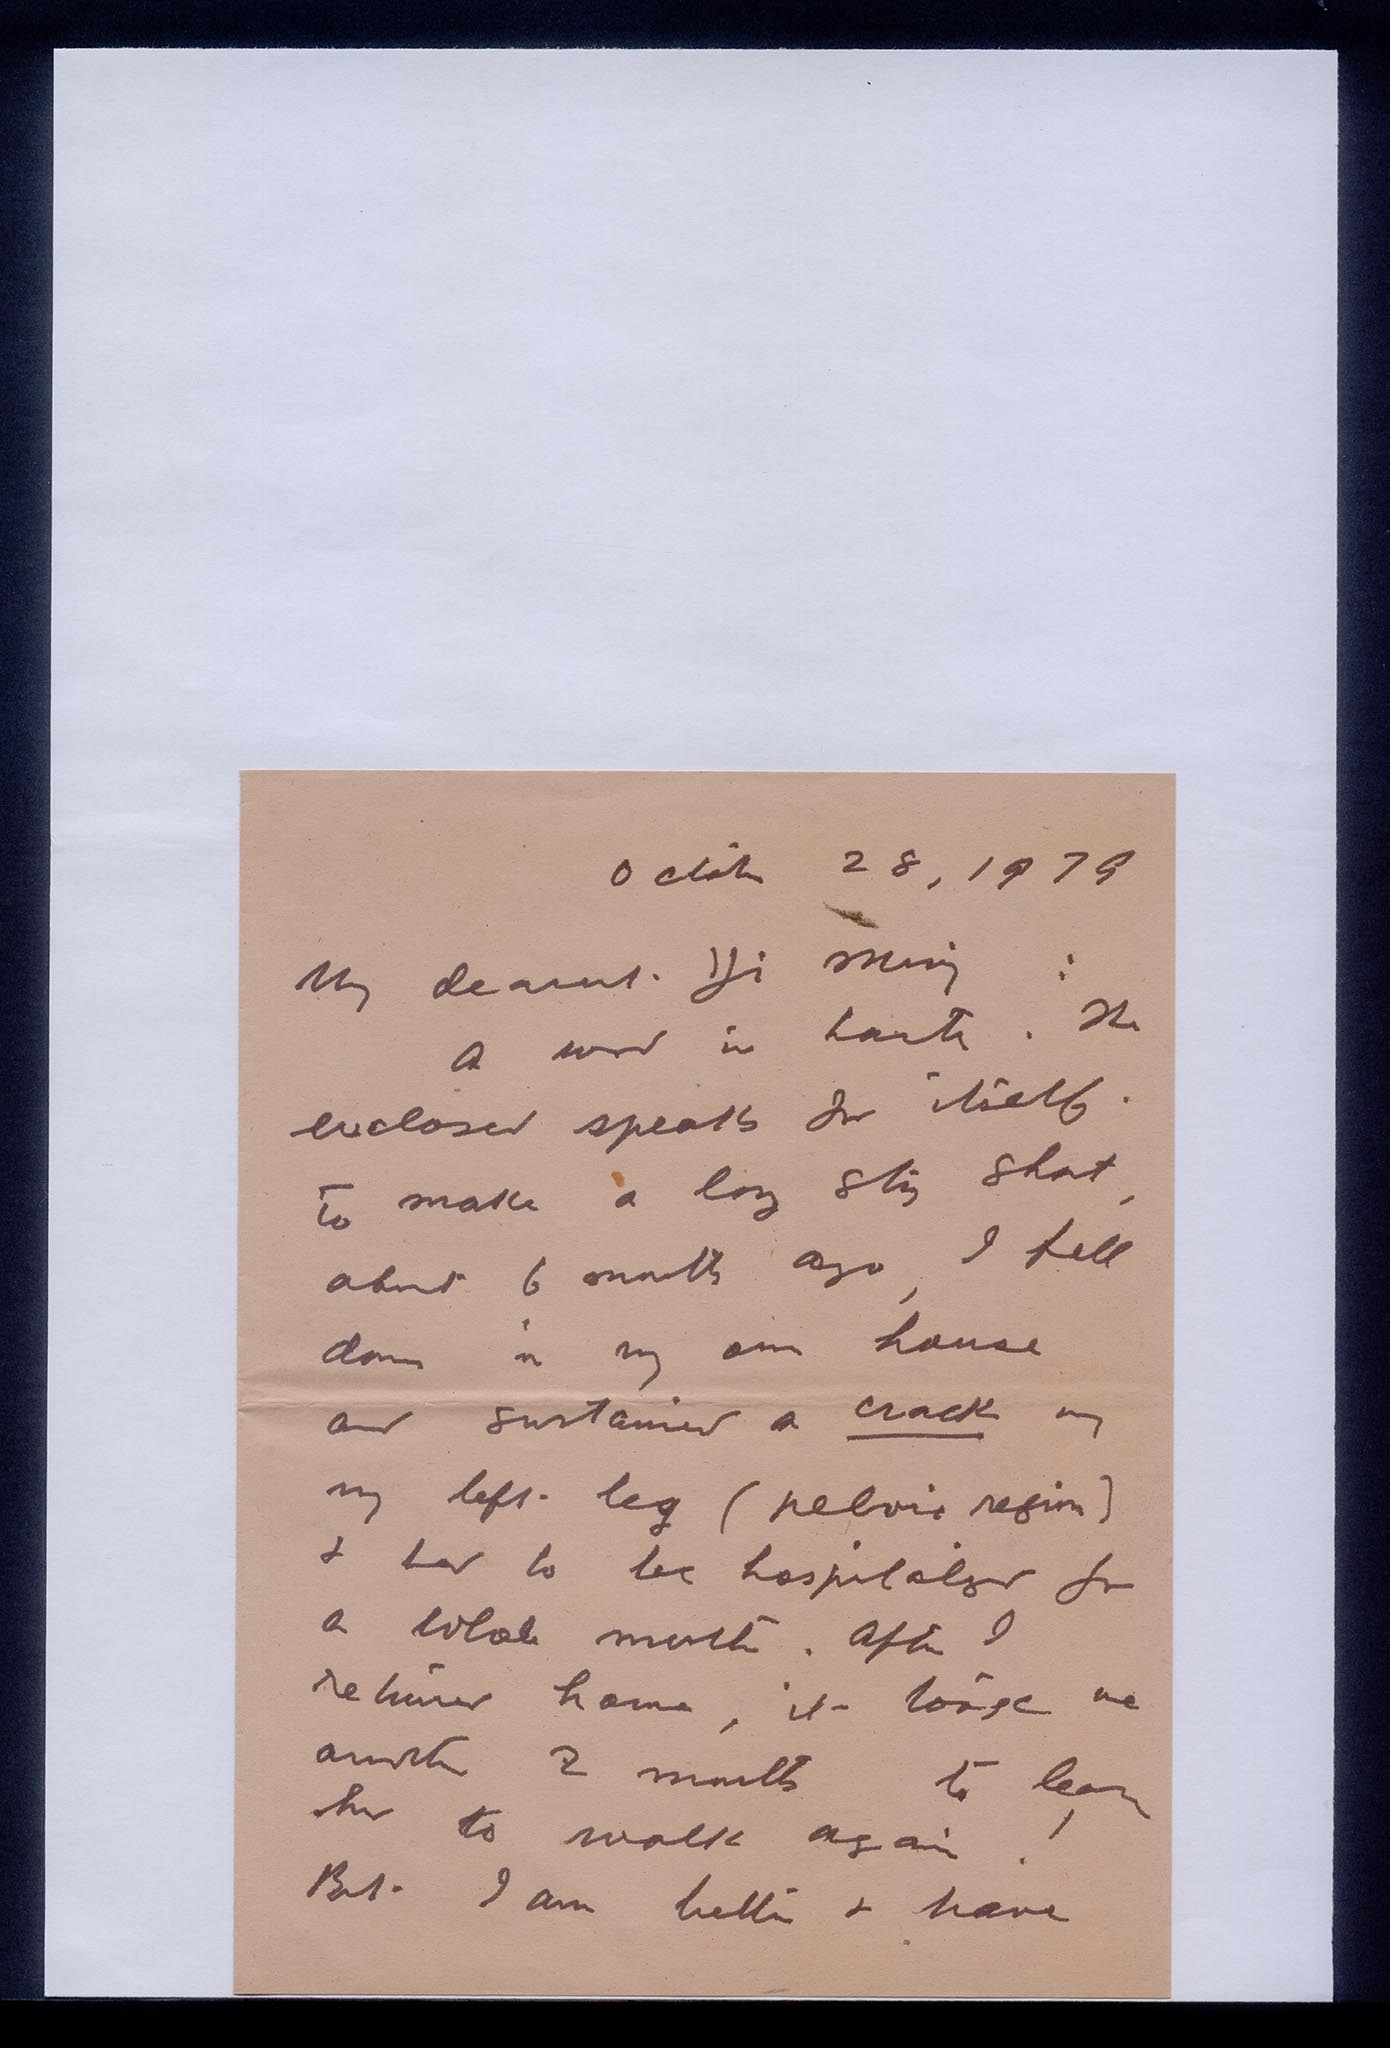 October 28, 1979
My dearest Yi
A word in haste. The
enclosed speaks for itself.
To make a long story short,
about 6 months ago, I fell
down in my own house
and sustained a crack
my left leg (pelvic region)
& had to be hospitalized for
a whole month. After I
returned home, it took me
another 2 months to learn
how to walk again!
But I am better & have